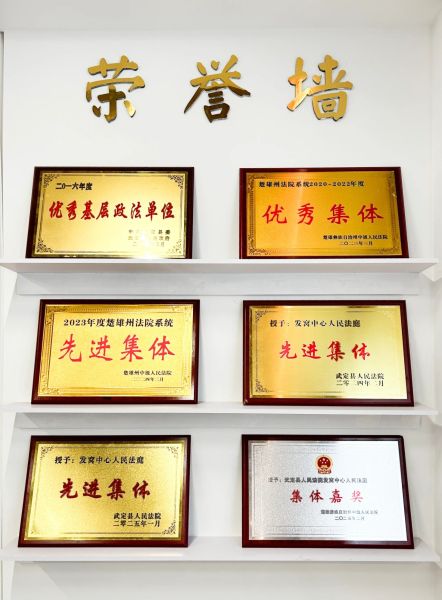 荣誉墙
二〇一六年度
优秀基层政法单位
楚雄州法院系统2020-2022年度
优秀集体
楚雄彝族自治州中级人民法院
二〇二三年三月
2023年度楚雄州法院系统
先进集体
楚雄州中级人民法院
二〇二四年二月
授于：发窝中心人民法庭
先进集体
武定县人民法院
二零二四年二月
授于：发窝中心人民法庭
先进集体
武定县人民法院
二零二五年一月
授予：武定县人民法院发窝中心人民法庭
集体嘉奖
楚雄彝族自治州中级人民法院